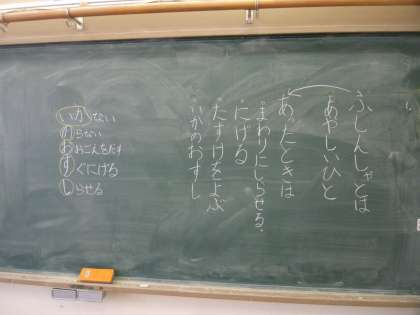 ふしんしゃとは
あやしいひと
あったときは
・まわりにしらせる。
・にげる
・たすけをよぶ
・いかのおすし
いかない
のらない
おおごえをだす
すぐにげる
しらせる